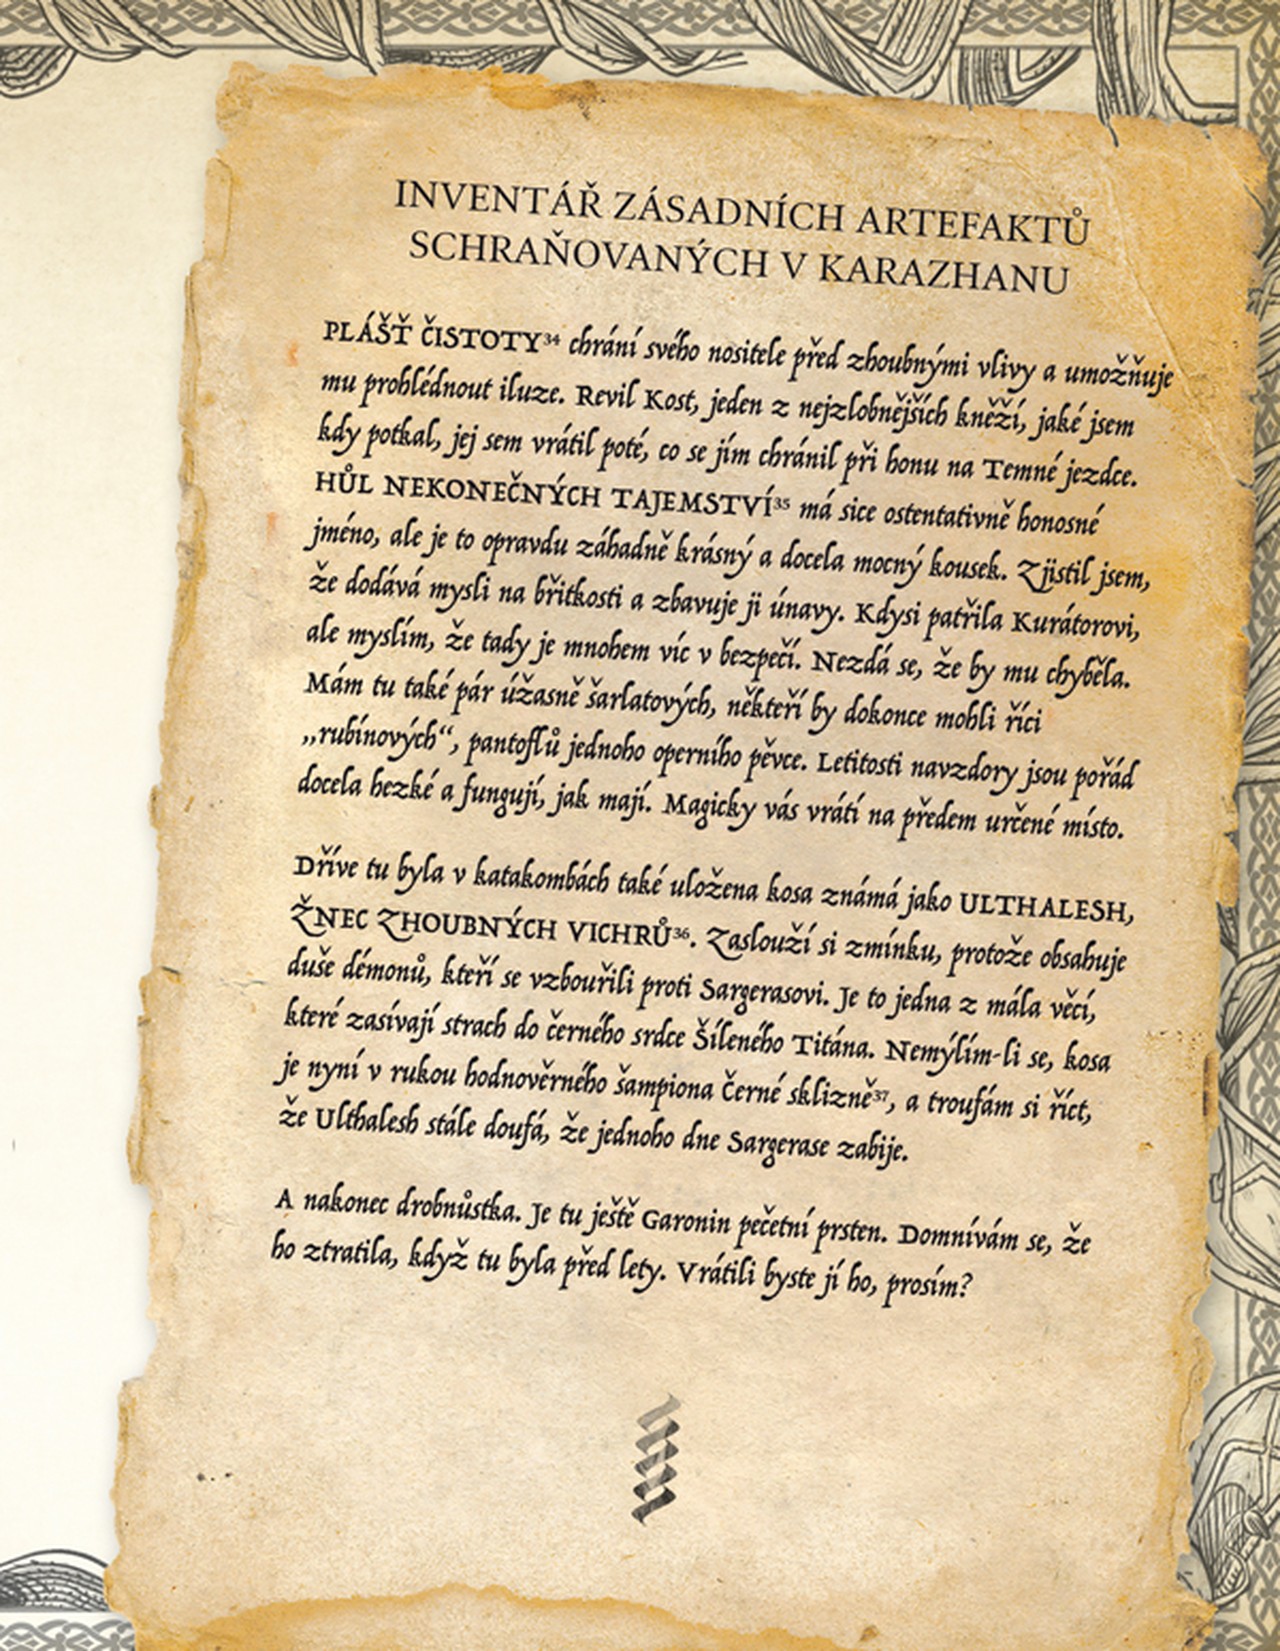 INVENTÁŘ ZÁSADNÍCH ARTEFAKTŮ
SCHRAŇOVANÝCH V KARAZHANU
PLÁŠŤ ČISTOTY³⁴ chrání svého nositele před zhoubnými vlivy a umožňuje
mu prohlédnout iluze. Revil Kost, jeden z nejzlobnějších kněží, jaké jsem
kdy potkal, jej sem vrátil poté, co se jím chránil při honu na Temné jezdce.
HŮL NEKONEČNÝCH TAJEMSTVÍ³⁵ má sice ostentativně honosné
jméno, ale je to opravdu záhadně krásný a docela mocný kousek. Zjistil jsem,
že dodává mysli na břitkosti a zbavuje ji únavy. Kdysi patřila Kurátorovi,
ale myslím, že tady je mnohem víc v bezpečí. Nezdá se, že by mu chyběla.
Mám tu také pár úžasně šarlatových, někteří by dokonce mohli říci
„rubínových“, pantoflů jednoho operního pěvce. Letitosti navzdory jsou pořád
docela hezké a fungují, jak mají. Magicky vás vrátí na předem určené místo.
Dříve tu byla v katakombách také uložena kosa známá jako ULTHALESH,
ŽNEC ZHOUBNÝCH VICHRŮ³⁶. Zaslouží si zmínku, protože obsahuje
duše démonů, kteří se vzbouřili proti Sargerasovi. Je to jedna z mála věcí,
které zasívají strach do černého srdce Šíleného Titána. Nemýlím-li se, kosa
je nyní v rukou hodnověrného šampiona Černé sklizně³⁷, a troufám si říct,
že Ulthalesh stále doufá, že jednoho dne Sargerase zabije.
A nakonec drobnůstka. Je tu ještě Garonin pečetní prsten. Domnívám se, že
ho ztratila, když tu byla před lety. Vrátili byste jí ho, prosím?